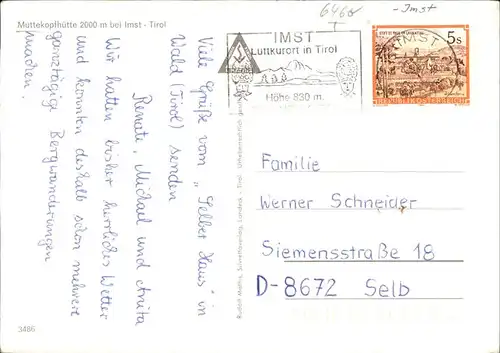 Muttekopfhütte 2000 m bei Imst - Tirol
Viele Grüße vom „Selber Haus" in
Wald (Tirol) senden
Renate, Michael und Anita
Wir hatten bisher herrliches Wetter
und konnten deshalb schon mehrere
ganztägige Bergwanderungen
machen.
3486
6460
T
-Imst
IMST
Luftkurort in Tirol
Höhe 830 m
IMST
5s
REPUBLIK ÖSTERREICH
Familie
Werner Schneider
Siemensstraße 18
D-8672 Selb